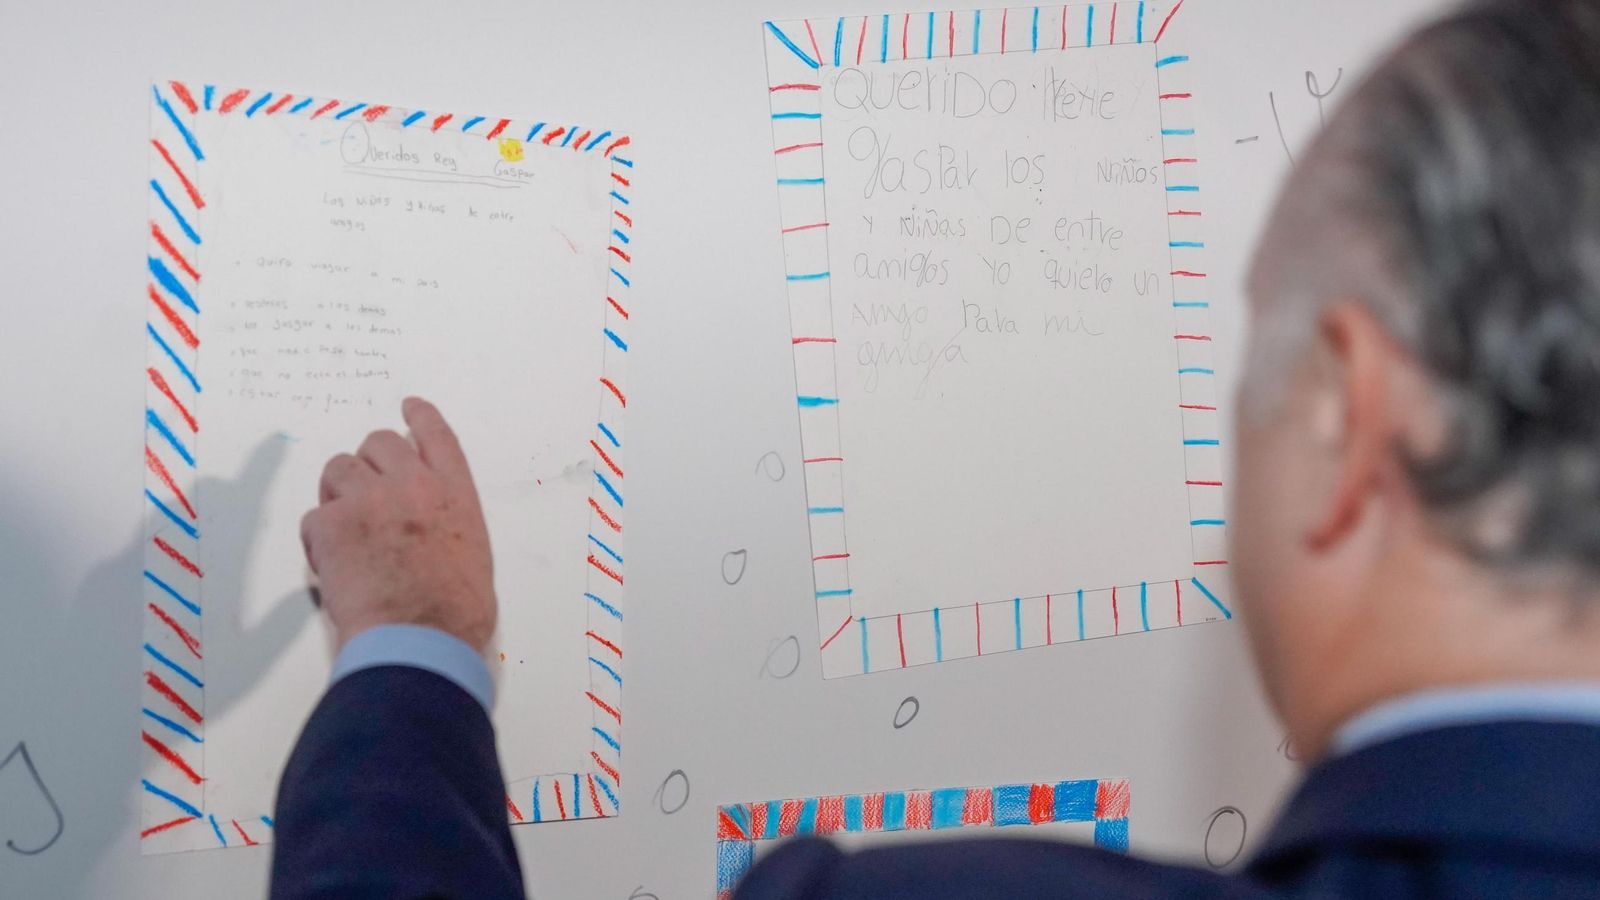 Queridos Rey
Gaspar
Los niños y niñas de entre
amigos
quiro viagar a
mi pais
a los demás
no jusgar a los demas
que nadie pase hambre
que no exista el
estar con familia
Querido Reye
gaspar los niños
y niñas De entre
amigos yo quiero un
amigo Para mi
amiga